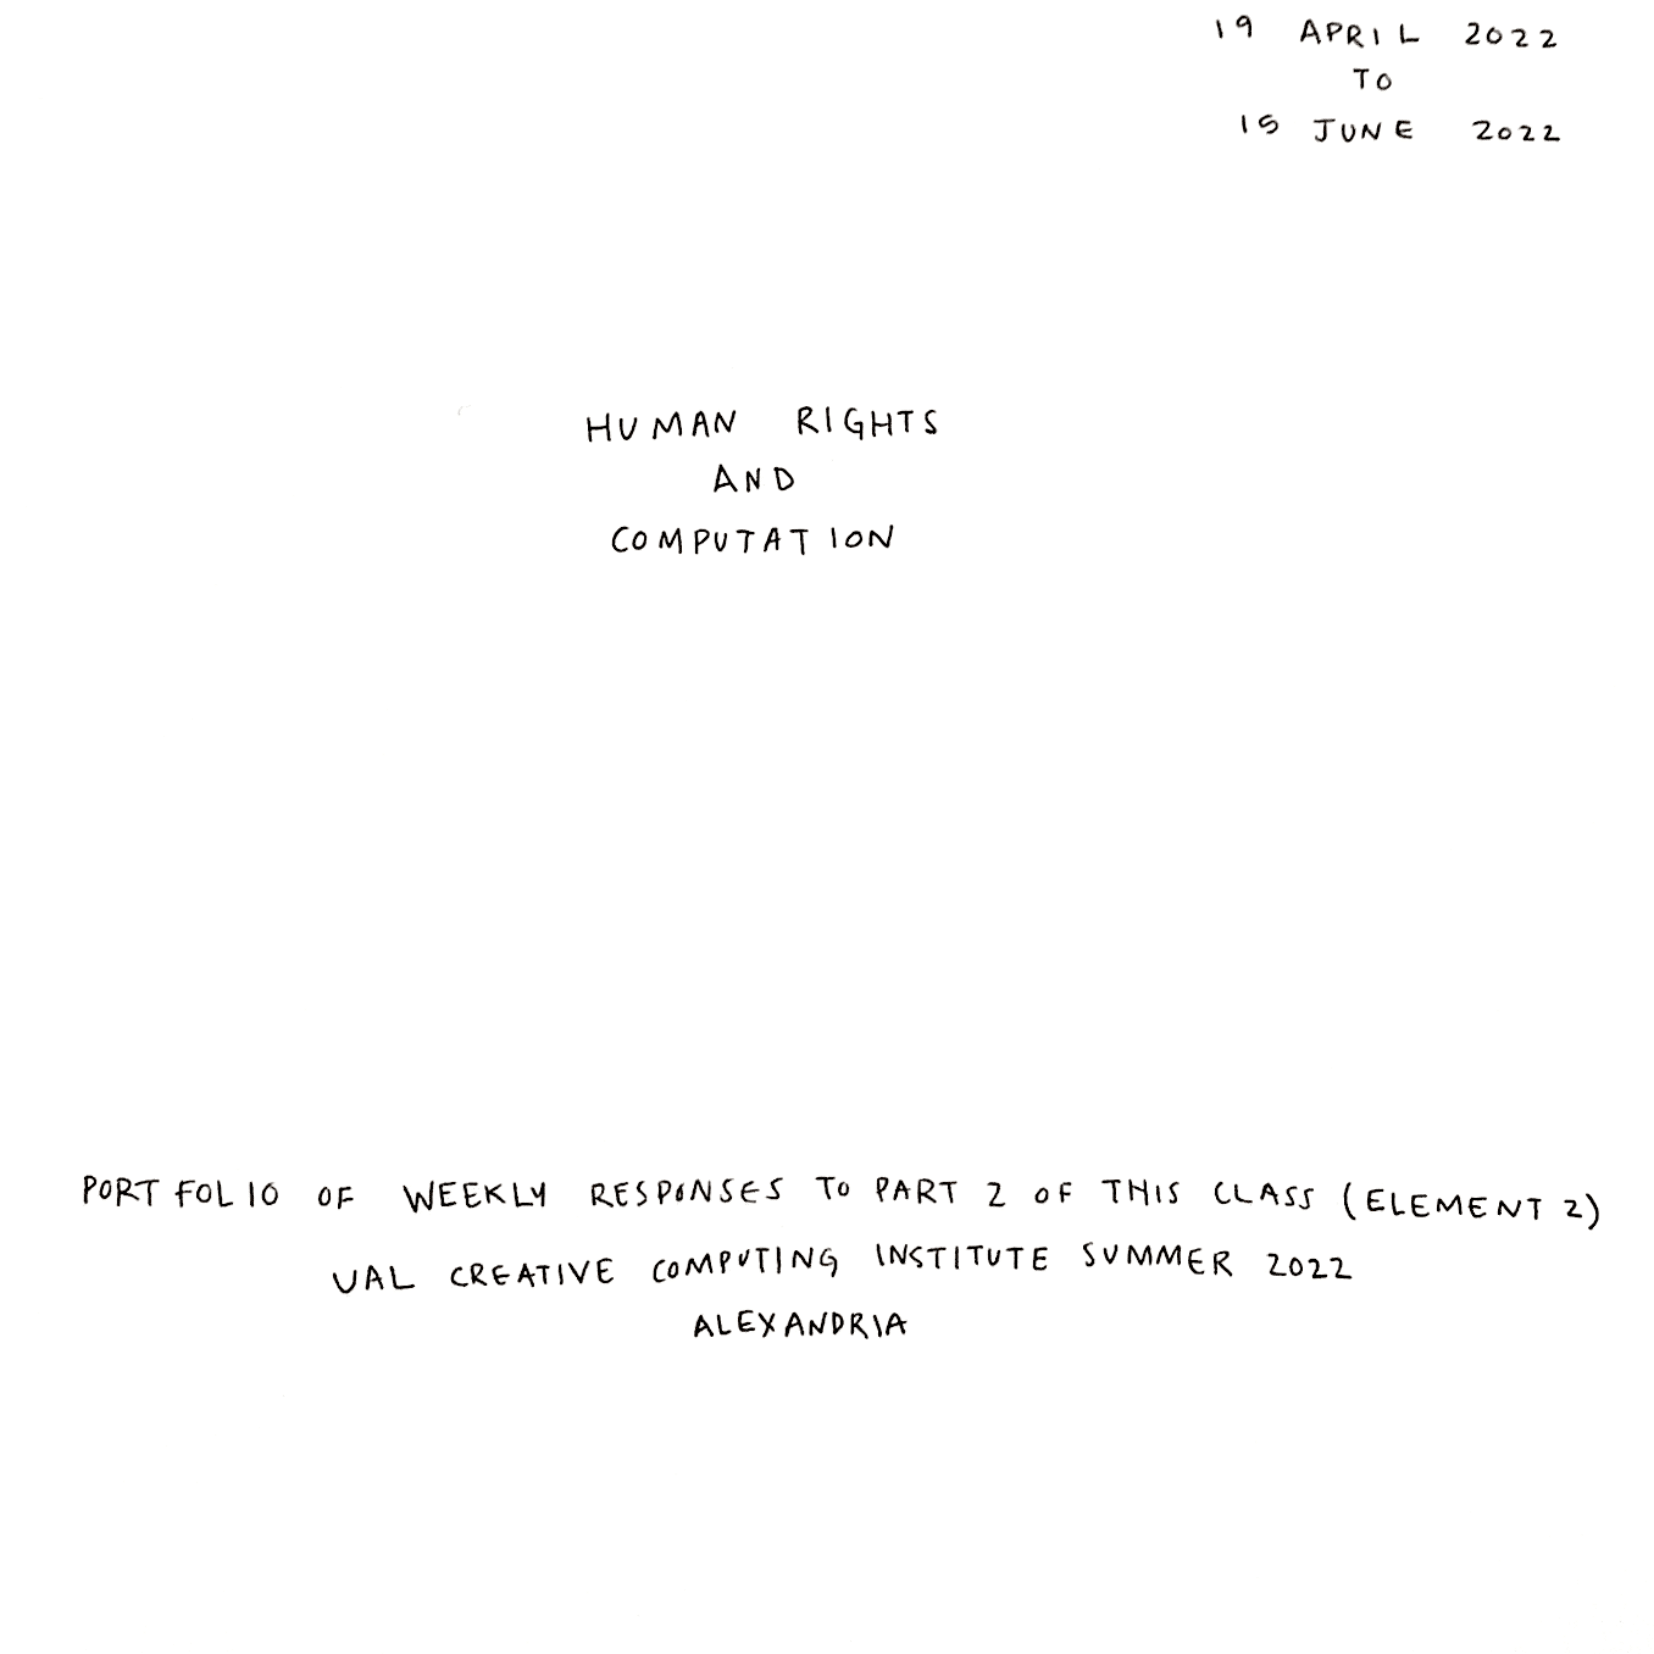 19 APRIL 2022
TO
15 JUNE 2022
HUMAN RIGHTS
AND
COMPUTATION
PORTFOLIO OF WEEKLY RESPONSES TO PART 2 OF THIS CLASS (ELEMENT 2)
UAL CREATIVE COMPUTING INSTITUTE SUMMER 2022
ALEXANDRIA